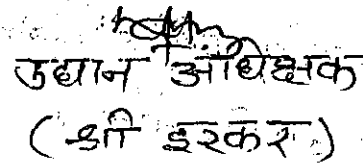 उद्यान अधिक्षक
(श्री इरकर)